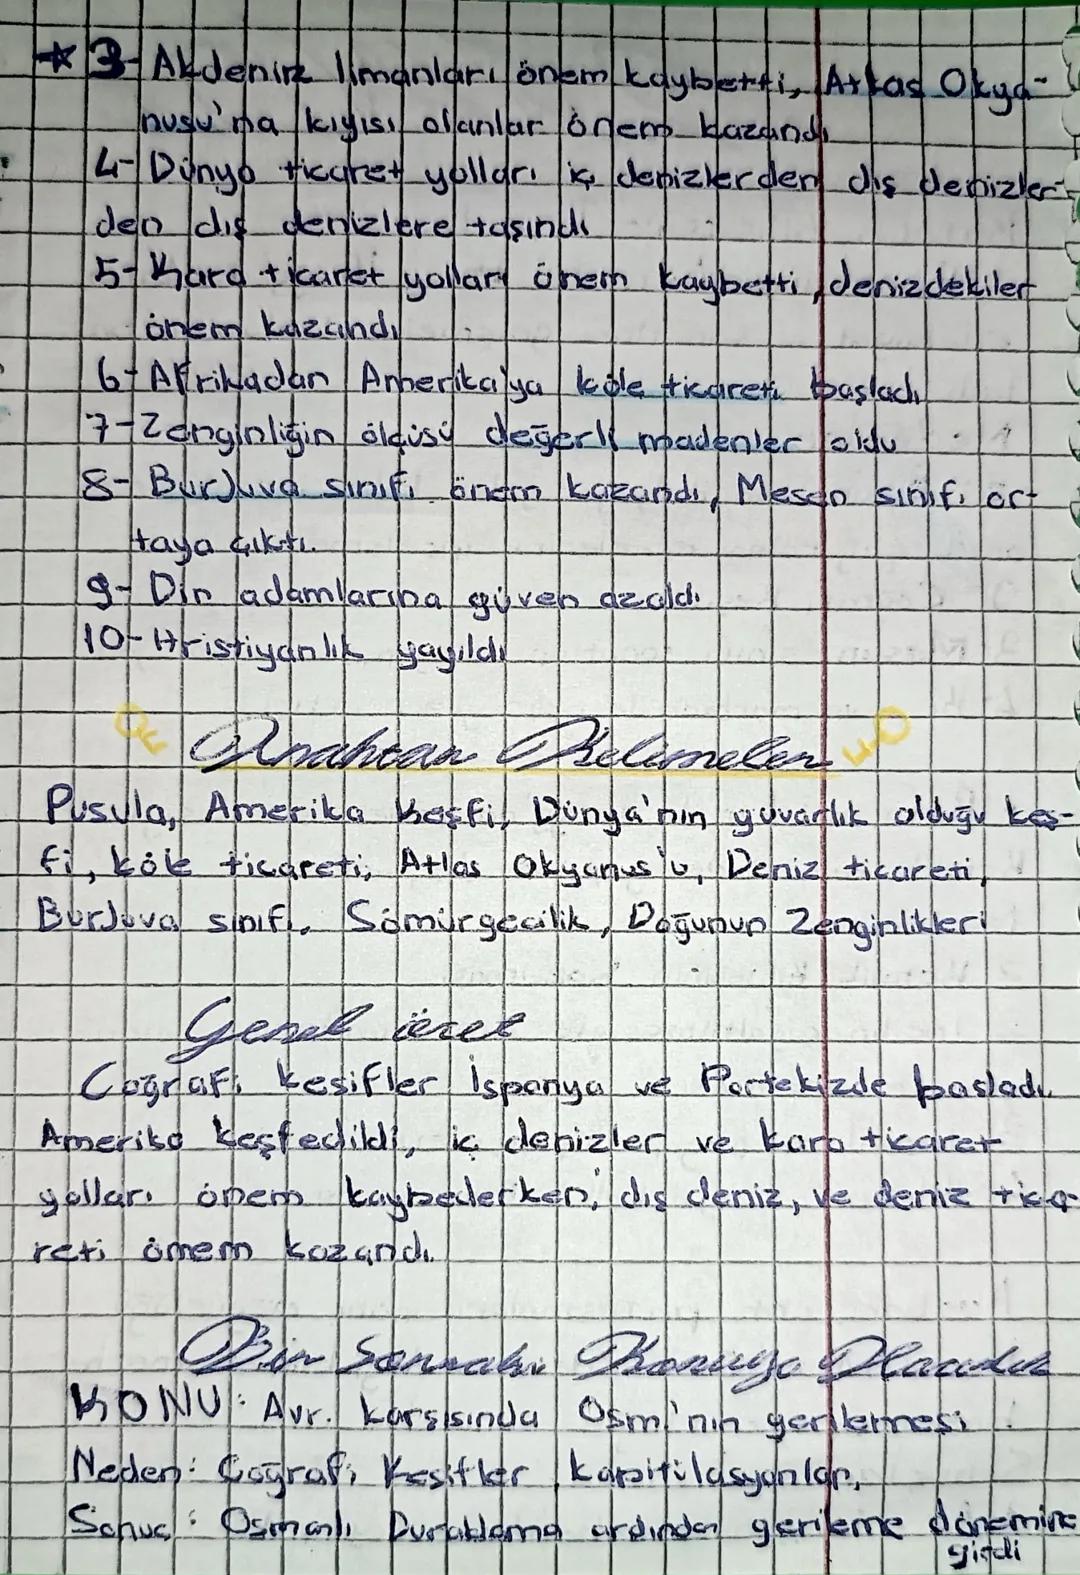 * 3- Akdeniz limanları önem kaybetti, Atlas Okya-
nusu'na kıyısı olanlar önem kazandı
4- Dünya ticaret yolları iç denizlerden dış denizler-
den dış denizlere taşındı
5- Kara ticaret yolları önem kaybetti, denizdekiler
önem kazandı
6- Afrikadan Amerika'ya köle ticareti başladı
7- Zenginliğin ölçüsü değerli madenler oldu
8- Burjuva sınıfı önem kazandı, Mesen sınıfı or-
taya çıktı.
9- Din adamlarına güven azaldı
10- Hristiyanlık yayıldı
Anahtar Kelimeler
Pusula, Amerika Keşfi, Dünya'nın yuvarlık olduğu keş-
fi, köle ticareti, Atlas Okyanus'u, Deniz ticareti,
Burjuva sınıfı, Sömürgecilik, Doğunun Zenginlikleri
Genel özet
Coğrafi kesifler İspanya ve Portekizde başladı.
Amerika keşfedildi, iç denizler ve kara ticaret
yolları önem kaybederken, dış deniz, ve deniz tica-
reti önem kazandı.
Bir Sonraki Konuya Hazırlık
KONU: Avr. karşısında Osm.'nın gerilemesi
Neden: Coğrafi Kesifler, kapitilasyonlar,
Sonuç: Osmanlı Duraklama ardından gerileme dönemine
girdi